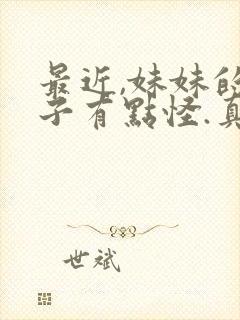 最近,妹妹的
子有點怪.真
世斌